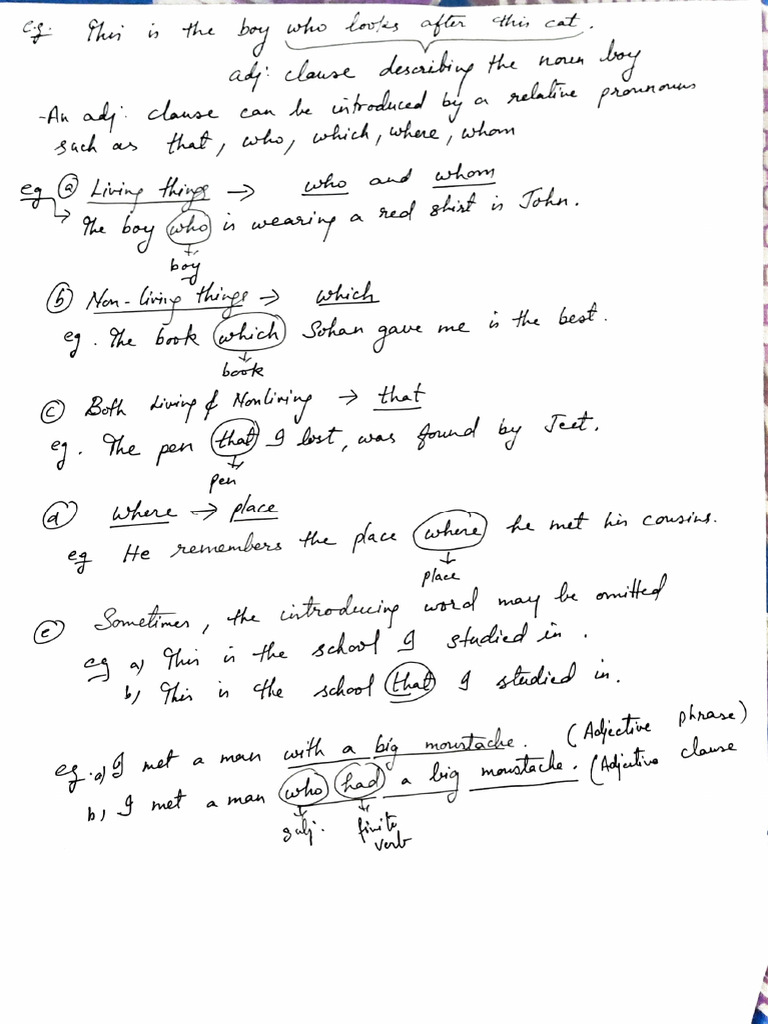 e.g. This is the boy who looks after this cat.
adj: clause describing the noun boy
-An adj: clause can be introduced by a relative pronouns
such as that, who, which, where, whom
eg (a) Living things → who and whom
The boy who is wearing a red shirt is John.
boy
(b) Non-living things → which
eg. The book which Sohan gave me is the best.
book
(c) Both Living & Nonliving → that
eg. The pen that I lost, was found by Jeet.
pen
(d) where → place
eg He remembers the place where he met his cousins.
place
(e) Sometimes, the introducing word may be omitted
eg a) This is the school I studied in.
b) This is the school that I studied in.
eg. a) I met a man with a big moustache. (Adjective phrase)
b) I met a man who had a big moustache. (Adjective clause
subj. finite
verb